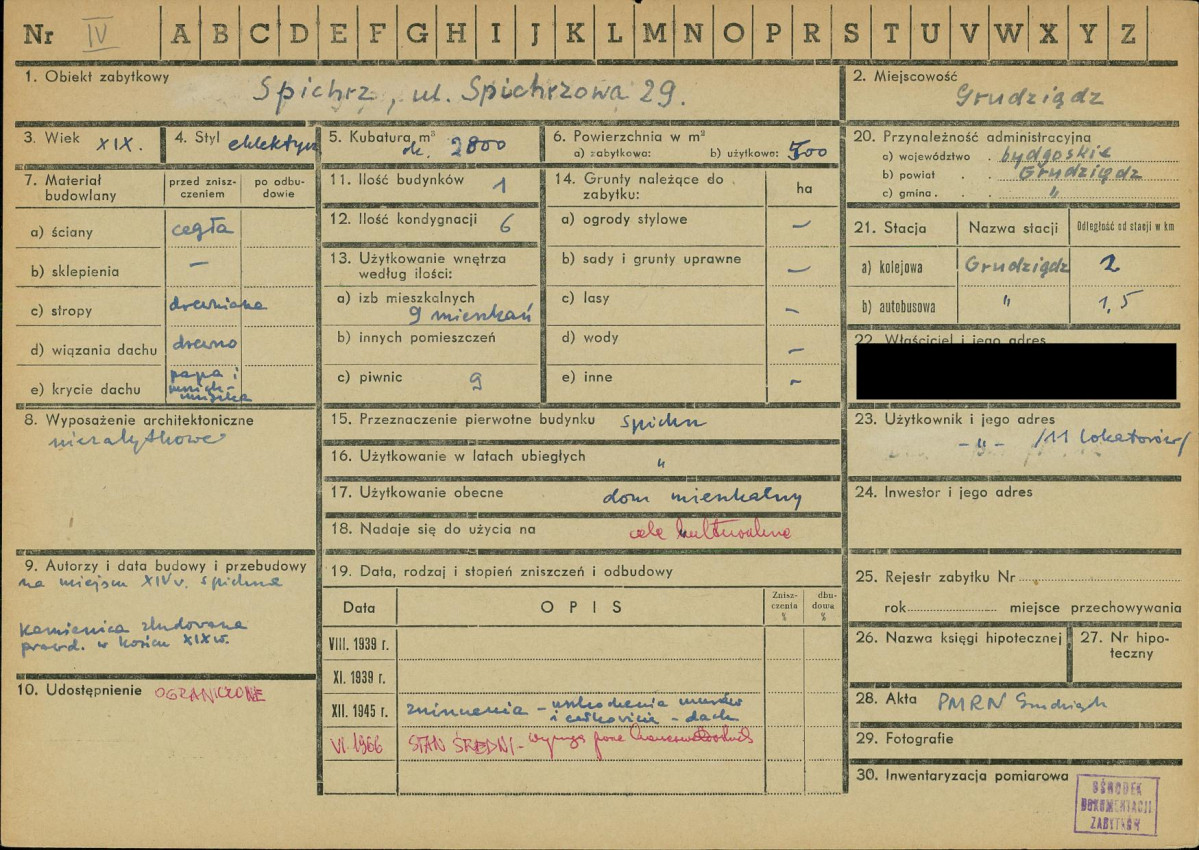 Nr IV A B C D E F G H I J K L M N O P R S T U V W X Y Z
1. Obiekt zabytkowy Spichrz, ul. Spichrzowa 29.
2. Miejscowość Grudziądz
3. Wiek XIX.
4. Styl eklektyzm
5. Kubatura m³ ok. 2800
6. Powierzchnia w m²
a) zabytkowa: b) użytkowa: 500
20. Przynależność administracyjna
a) województwo bydgoskie
b) powiat Grudziądz
c) gmina "
7. Materiał budowlany
przed zniszczeniem
po odbudowie
a) ściany cegła
b) sklepienia –
c) stropy drewniane
d) wiązania dachu drewno
e) krycie dachu papa i
mnich-
mniszka
11. Ilość budynków 1
12. Ilość kondygnacji 6
13. Użytkowanie wnętrza
według ilości:
a) izb mieszkalnych
9 mieszkań
b) innych pomieszczeń
c) piwnic 9
14. Grunty należące do
zabytku:
ha
a) ogrody stylowe –
b) sady i grunty uprawne –
c) lasy –
d) wody –
e) inne –
21. Stacja Nazwa stacji Odległość od stacji w km
a) kolejowa Grudziądz 2
b) autobusowa " 1,5
22. Właściciel i jego adres
8. Wyposażenie architektoniczne
niezabytkowe
15. Przeznaczenie pierwotne budynku spichrz
16. Użytkowanie w latach ubiegłych "
17. Użytkowanie obecne dom mieszkalny
18. Nadaje się do użycia na cele kulturalne
23. Użytkownik i jego adres
– " – /11 lokatorów/
24. Inwestor i jego adres
9. Autorzy i data budowy i przebudowy
na miejscu XIV w. spichrza
Kamienica zbudowana
prawd. w końcu XIX w.
10. Udostępnienie OGRANICZONE
19. Data, rodzaj i stopień zniszczeń i odbudowy
Data OPIS Zniszczenia % dbudowa %
VIII. 1939 r.
XI. 1939 r.
XII. 1945 r. zniszczenia – uszkodzenia murów
i całkowicie – dach
VI. 1966 STAN ŚREDNI – wymaga
25. Rejestr zabytku Nr
rok miejsce przechowywania
26. Nazwa księgi hipotecznej
27. Nr hipoteczny
28. Akta PMRN Grudziądz
29. Fotografie
30. Inwentaryzacja pomiarowa
OŚRODEK
DOKUMENTACJI
ZABYTKÓW